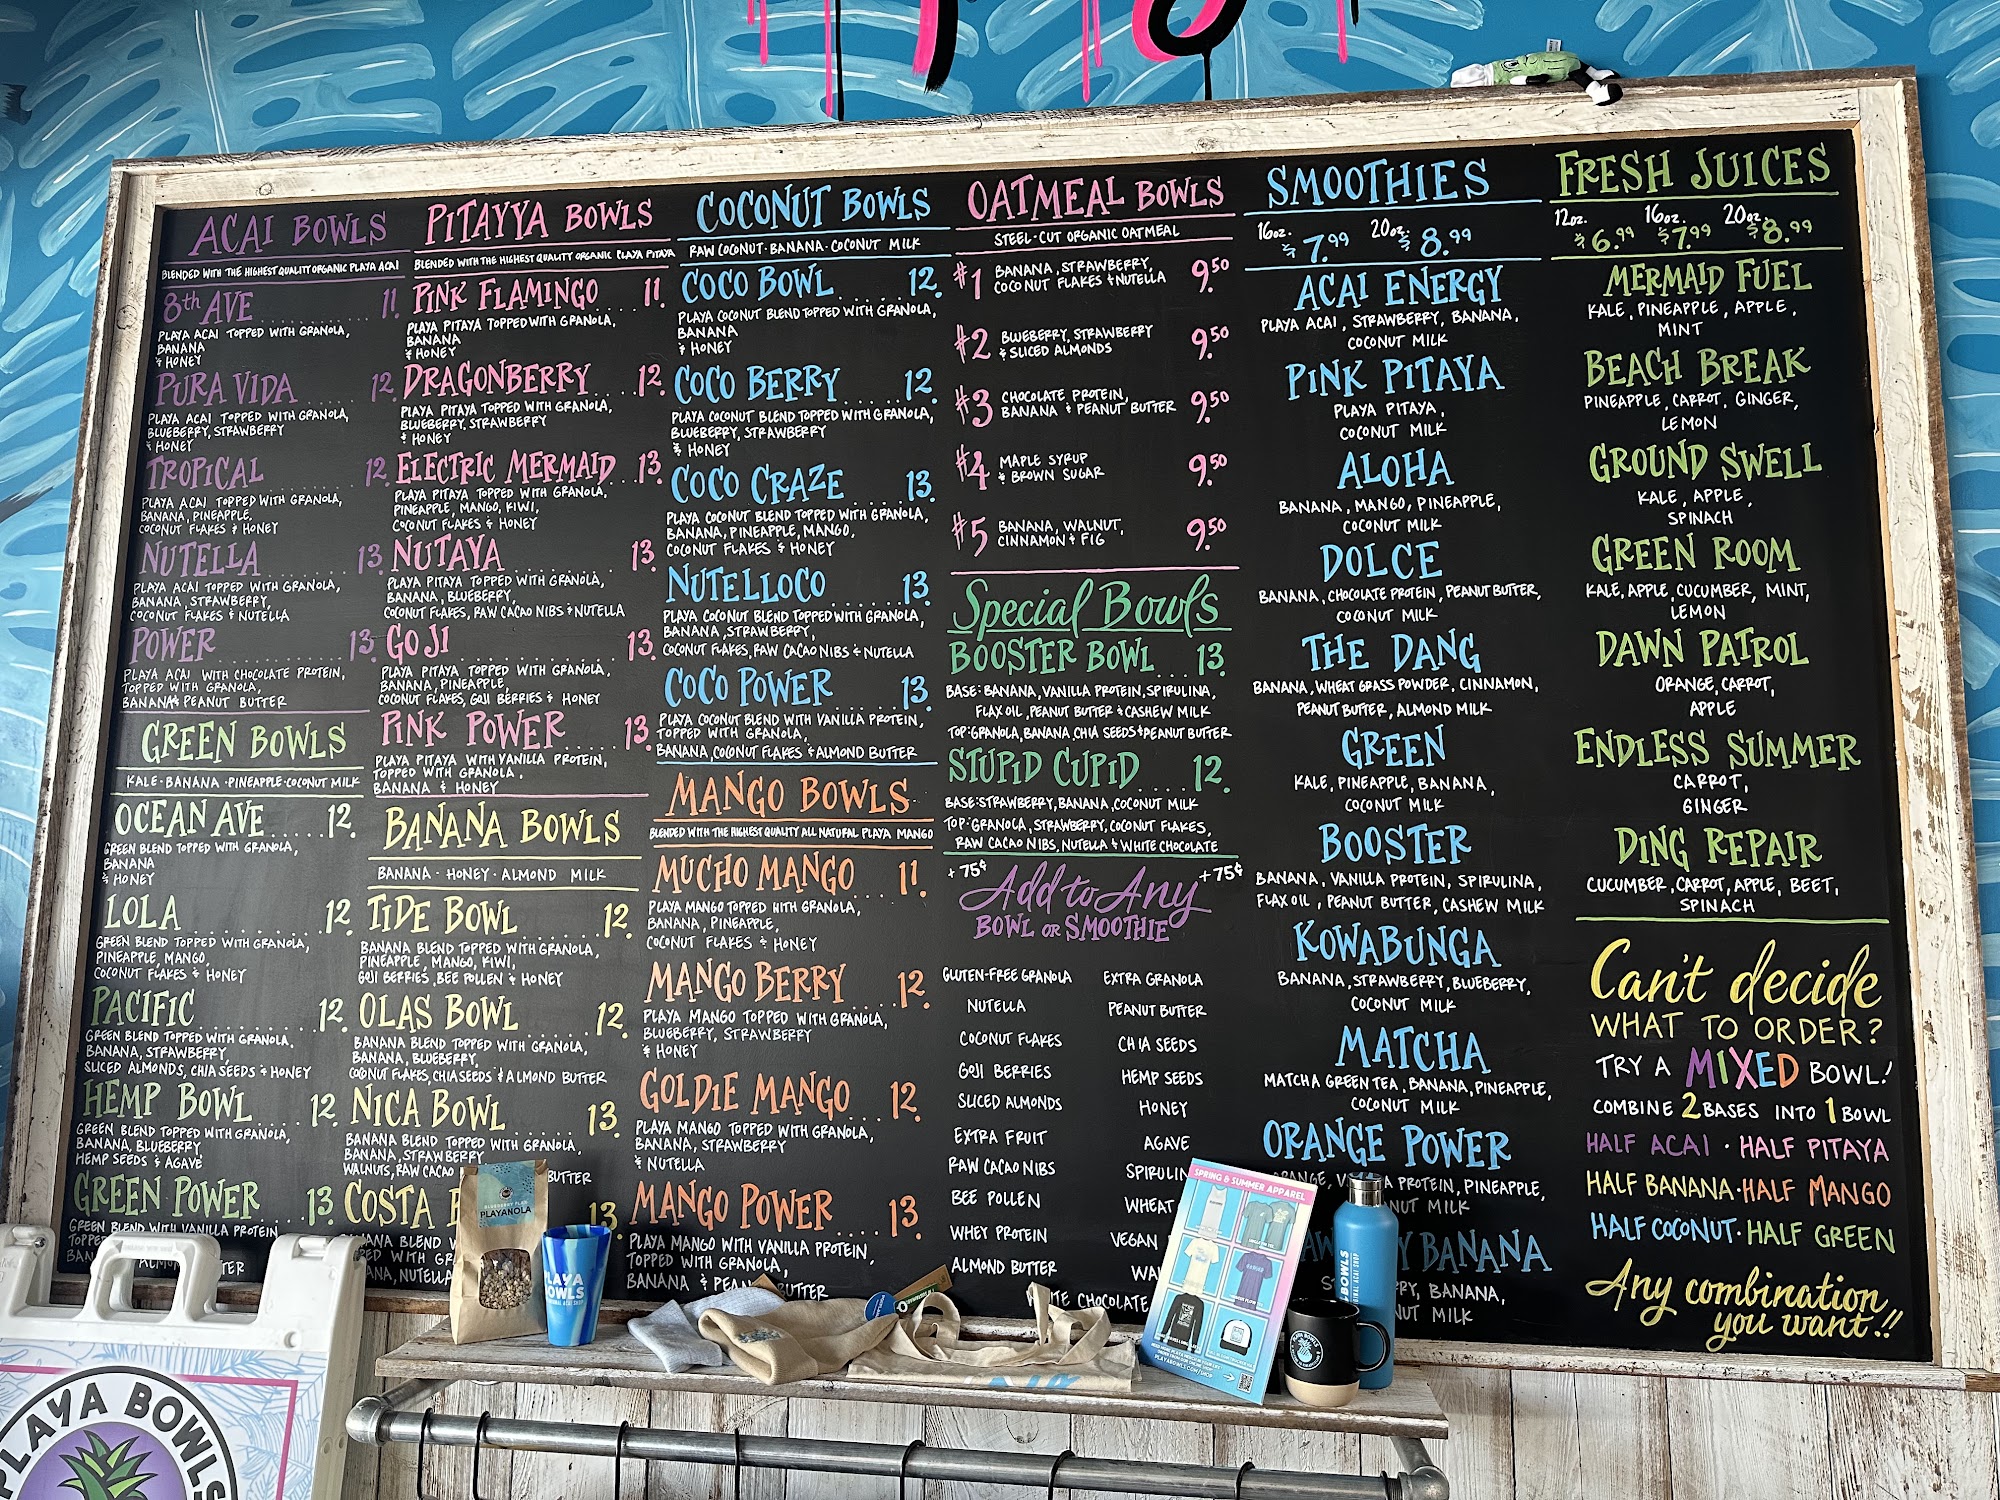 ACAI BOWLS
BLENDED WITH THE HIGHEST QUALITY ORGANIC PLAYA ACAI
8th AVE ........ 11.
PLAYA ACAI TOPPED WITH GRANOLA,
BANANA
& HONEY
PURA VIDA ....... 12.
PLAYA ACAI TOPPED WITH GRANOLA,
BLUEBERRY, STRAWBERRY
& HONEY
TROPICAL ........ 12.
PLAYA ACAI TOPPED WITH GRANOLA,
BANANA, PINEAPPLE,
COCONUT FLAKES & HONEY
NUTELLA ........ 13.
PLAYA ACAI TOPPED WITH GRANOLA,
BANANA, STRAWBERRY,
COCONUT FLAKES & NUTELLA
POWER .......... 13.
PLAYA ACAI WITH CHOCOLATE PROTEIN,
TOPPED WITH GRANOLA,
BANANA & PEANUT BUTTER
GREEN BOWLS
KALE · BANANA · PINEAPPLE · COCONUT MILK
OCEAN AVE ..... 12.
GREEN BLEND TOPPED WITH GRANOLA,
BANANA
& HONEY
LOLA .......... 12.
GREEN BLEND TOPPED WITH GRANOLA,
PINEAPPLE, MANGO,
COCONUT FLAKES & HONEY
PACIFIC ......... 12.
GREEN BLEND TOPPED WITH GRANOLA,
BANANA, STRAWBERRY,
SLICED ALMONDS, CHIA SEEDS & HONEY
HEMP BOWL ..... 12.
GREEN BLEND TOPPED WITH GRANOLA,
BANANA, BLUEBERRY
HEMP SEEDS & AGAVE
GREEN POWER ... 13.
GREEN BLEND WITH VANILLA PROTEIN
PITAYYA BOWLS
BLENDED WITH THE HIGHEST QUALITY ORGANIC PLAYA PITAYA
PINK FLAMINGO .... 11.
PLAYA PITAYA TOPPED WITH GRANOLA,
BANANA
& HONEY
DRAGONBERRY .... 12.
PLAYA PITAYA TOPPED WITH GRANOLA,
BLUEBERRY, STRAWBERRY
& HONEY
ELECTRIC MERMAID .. 13.
PLAYA PITAYA TOPPED WITH GRANOLA,
PINEAPPLE, MANGO, KIWI,
COCONUT FLAKES & HONEY
NUTAYA .......... 13.
PLAYA PITAYA TOPPED WITH GRANOLA,
BANANA, BLUEBERRY,
COCONUT FLAKES, RAW CACAO NIBS & NUTELLA
GOJI ............ 13.
PLAYA PITAYA TOPPED WITH GRANOLA,
BANANA, PINEAPPLE,
COCONUT FLAKES, GOJI BERRIES & HONEY
PINK POWER ..... 13.
PLAYA PITAYA WITH VANILLA PROTEIN,
TOPPED WITH GRANOLA,
BANANA & HONEY
BANANA BOWLS
BANANA · HONEY · ALMOND MILK
TIDE BOWL ....... 12.
BANANA BLEND TOPPED WITH GRANOLA,
PINEAPPLE, MANGO, KIWI,
GOJI BERRIES, BEE POLLEN & HONEY
OLAS BOWL ....... 12.
BANANA BLEND TOPPED WITH GRANOLA,
BANANA, BLUEBERRY,
COCONUT FLAKES, CHIA SEEDS & ALMOND BUTTER
NICA BOWL ....... 13.
BANANA BLEND TOPPED WITH GRANOLA,
BANANA, STRAWBERRY,
WALNUTS, RAW CACAO BUTTER
COSTA 13.
COCONUT BOWLS
RAW COCONUT · BANANA · COCONUT MILK
COCO BOWL ...... 12.
PLAYA COCONUT BLEND TOPPED WITH GRANOLA,
BANANA
& HONEY
COCO BERRY ..... 12.
PLAYA COCONUT BLEND TOPPED WITH GRANOLA,
BLUEBERRY, STRAWBERRY
& HONEY
COCO CRAZE ..... 13.
PLAYA COCONUT BLEND TOPPED WITH GRANOLA,
BANANA, PINEAPPLE, MANGO,
COCONUT FLAKES & HONEY
NUTELLOCO ...... 13.
PLAYA COCONUT BLEND TOPPED WITH GRANOLA,
BANANA, STRAWBERRY,
COCONUT FLAKES, RAW CACAO NIBS & NUTELLA
COCO POWER ..... 13.
PLAYA COCONUT BLEND WITH VANILLA PROTEIN,
TOPPED WITH GRANOLA,
BANANA, COCONUT FLAKES & ALMOND BUTTER
MANGO BOWLS
BLENDED WITH THE HIGHEST QUALITY ALL NATURAL PLAYA MANGO
MUCHO MANGO ... 11.
PLAYA MANGO TOPPED WITH GRANOLA,
BANANA, PINEAPPLE,
COCONUT FLAKES & HONEY
MANGO BERRY .... 12.
PLAYA MANGO TOPPED WITH GRANOLA,
BLUEBERRY, STRAWBERRY
& HONEY
GOLDIE MANGO ... 12.
PLAYA MANGO TOPPED WITH GRANOLA,
BANANA, STRAWBERRY
& NUTELLA
MANGO POWER .... 13.
PLAYA MANGO WITH VANILLA PROTEIN,
TOPPED WITH GRANOLA,
BANANA & BUTTER
OATMEAL BOWLS
STEEL-CUT ORGANIC OATMEAL
#1 BANANA, STRAWBERRY, 9.50
COCONUT FLAKES & NUTELLA
#2 BLUEBERRY, STRAWBERRY 9.50
& SLICED ALMONDS
#3 CHOCOLATE PROTEIN, 9.50
BANANA & PEANUT BUTTER
#4 MAPLE SYRUP 9.50
& BROWN SUGAR
#5 BANANA, WALNUT, 9.50
CINNAMON & FIG
Special Bowls
BOOSTER BOWL ... 13.
BASE: BANANA, VANILLA PROTEIN, SPIRULINA,
FLAX OIL, PEANUT BUTTER & CASHEW MILK
TOP: GRANOLA, BANANA, CHIA SEEDS & PEANUT BUTTER
STUPID CUPID .... 12.
BASE: STRAWBERRY, BANANA, COCONUT MILK
TOP: GRANOLA, STRAWBERRY, COCONUT FLAKES,
RAW CACAO NIBS, NUTELLA & WHITE CHOCOLATE
+75¢ Add to Any +75¢
BOWL OR SMOOTHIE
GLUTEN-FREE GRANOLA EXTRA GRANOLA
NUTELLA PEANUT BUTTER
COCONUT FLAKES CHIA SEEDS
GOJI BERRIES HEMP SEEDS
SLICED ALMONDS HONEY
EXTRA FRUIT AGAVE
RAW CACAO NIBS
BEE POLLEN WHEAT
WHEY PROTEIN VEGAN
ALMOND BUTTER
CHOCOLATE
SMOOTHIES
16oz. $7.99 20oz. $8.99
ACAI ENERGY
PLAYA ACAI, STRAWBERRY, BANANA,
COCONUT MILK
PINK PITAYA
PLAYA PITAYA,
COCONUT MILK
ALOHA
BANANA, MANGO, PINEAPPLE,
COCONUT MILK
DOLCE
BANANA, CHOCOLATE PROTEIN, PEANUT BUTTER,
COCONUT MILK
THE DANG
BANANA, WHEAT GRASS POWDER, CINNAMON,
PEANUT BUTTER, ALMOND MILK
GREEN
KALE, PINEAPPLE, BANANA,
COCONUT MILK
BOOSTER
BANANA, VANILLA PROTEIN, SPIRULINA,
FLAX OIL, PEANUT BUTTER, CASHEW MILK
KOWABUNGA
BANANA, STRAWBERRY, BLUEBERRY,
COCONUT MILK
MATCHA
MATCHA GREEN TEA, BANANA, PINEAPPLE,
COCONUT MILK
ORANGE POWER
PROTEIN, PINEAPPLE,
MILK
BANANA
BANANA,
MILK
FRESH JUICES
12oz. $6.99 16oz. $7.99 20oz. $8.99
MERMAID FUEL
KALE, PINEAPPLE, APPLE,
MINT
BEACH BREAK
PINEAPPLE, CARROT, GINGER,
LEMON
GROUND SWELL
KALE, APPLE,
SPINACH
GREEN ROOM
KALE, APPLE, CUCUMBER, MINT,
LEMON
DAWN PATROL
ORANGE, CARROT,
APPLE
ENDLESS SUMMER
CARROT,
GINGER
DING REPAIR
CUCUMBER, CARROT, APPLE, BEET,
SPINACH
Can't decide
WHAT TO ORDER?
TRY A MIXED BOWL!
COMBINE 2 BASES INTO 1 BOWL
HALF ACAI · HALF PITAYA
HALF BANANA · HALF MANGO
HALF COCONUT · HALF GREEN
Any combination
you want!!
PLAYANOLA
PLAYA
BOWLS
SPRING & SUMMER APPAREL
PLAYABOWLS.COM/SHOP
BOWLS
PLAYA BOWLS